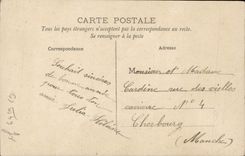 CARTE POSTALE
Tous les pays étrangers n'acceptent pas la correspondance au recto.
Se renseigner à la poste
Correspondance
Adresse
Souhait sincères
de bonne année
pour tous ton
amie
Julia
Monsieur et Madame
Cardine rue des vielles
N° 4
Cherbourg
(Manche)